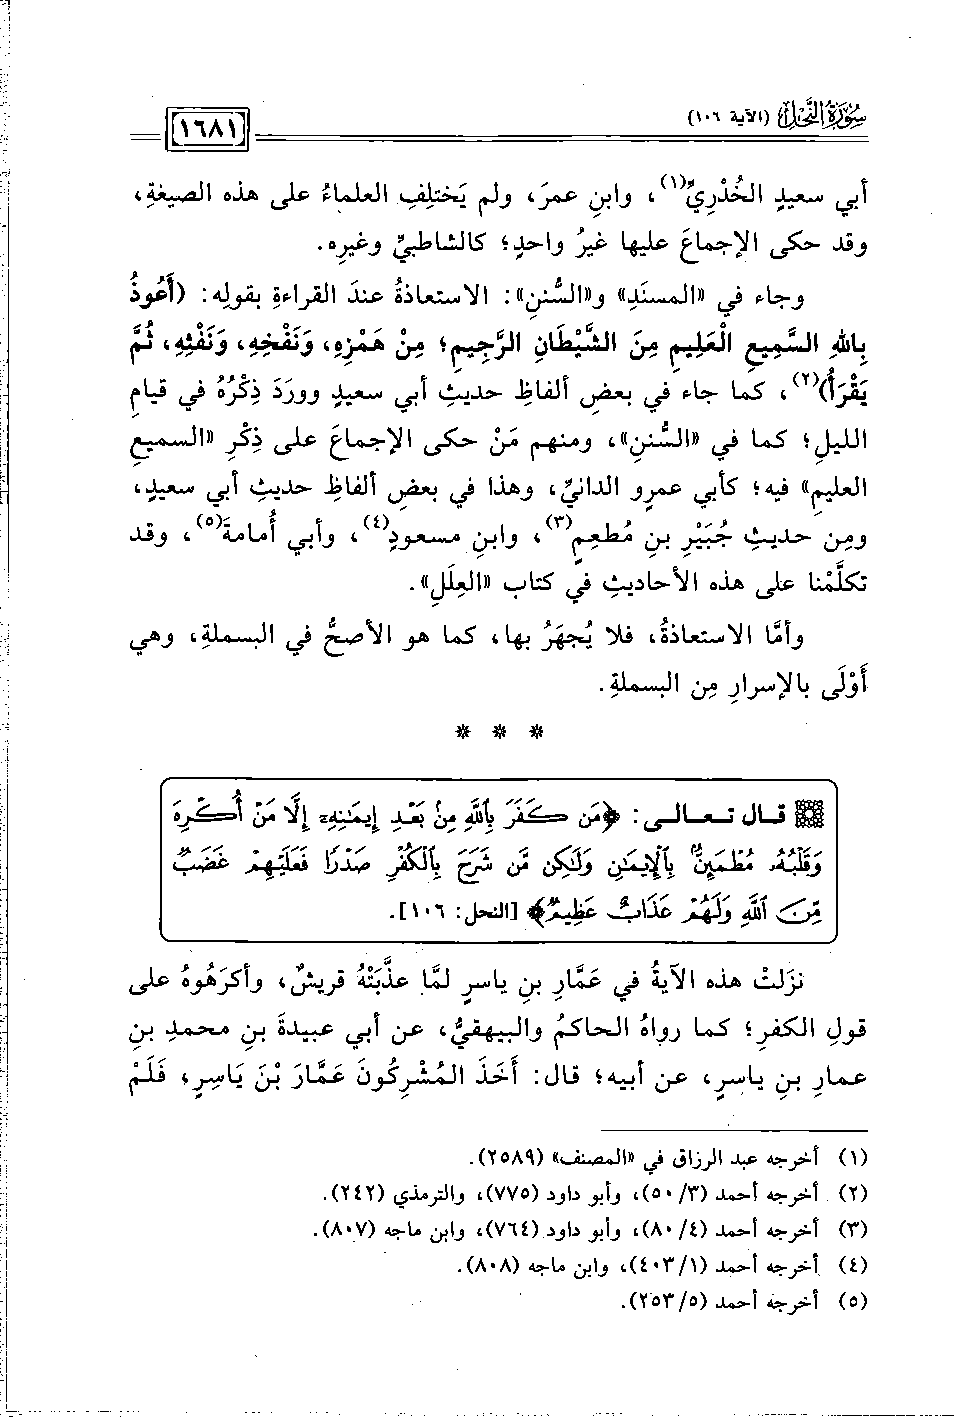 سُورَةُ النَّحْلِ (الآية ١٠٦)
[١٦٨١]
أبي سعيدٍ الخُدْرِيِّ(١)، وابنِ عمرَ، ولم يَختلِفِ العلماءُ على هذه الصيغةِ،
وقد حكى الإجماعَ عليها غيرُ واحدٍ؛ كالشاطبيِّ وغيرِه.
وجاء في «المسنَدِ» و«السُّننِ»: الاستعاذةُ عندَ القراءةِ بقولِه: (أَعُوذُ
بِاللهِ السَّمِيعِ الْعَلِيمِ مِنَ الشَّيْطَانِ الرَّجِيمِ؛ مِنْ هَمْزِهِ، وَنَفْخِهِ، وَنَفْثِهِ، ثُمَّ
يَقْرَأُ)(٢)، كما جاء في بعضِ ألفاظِ حديثِ أبي سعيدٍ ووَرَدَ ذِكْرُهُ في قيامِ
الليلِ؛ كما في «السُّننِ»، ومنهم مَنْ حكى الإجماعَ على ذِكْرِ «السميعِ
العليمِ» فيه؛ كأبي عمرٍو الدانيِّ، وهذا في بعضِ ألفاظِ حديثِ أبي سعيدٍ،
ومِن حديثِ جُبَيْرِ بنِ مُطعِمٍ(٣)، وابنِ مسعودٍ(٤)، وأبي أُمامةَ(٥)، وقد
تكلَّمْنا على هذه الأحاديثِ في كتاب «العِلَلِ».
وأمَّا الاستعاذةُ، فلا يُجهَرُ بها، كما هو الأصحُّ في البسملةِ، وهي
أَوْلَى بالإسرارِ مِن البسملةِ.
* * *
قـال تـعـالـى: ﴿مَن كَفَرَ بِٱللَّهِ مِنۢ بَعْدِ إِيمَٰنِهِۦٓ إِلَّا مَنْ أُكْرِهَ
وَقَلْبُهُۥ مُطْمَئِنٌّۢ بِٱلْإِيمَٰنِ وَلَٰكِن مَّن شَرَحَ بِٱلْكُفْرِ صَدْرًا فَعَلَيْهِمْ غَضَبٌ
مِّنَ ٱللَّهِ وَلَهُمْ عَذَابٌ عَظِيمٌ﴾ [النحل: ١٠٦].
نزَلتْ هذه الآيةُ في عَمَّارِ بنِ ياسرٍ لمَّا عذَّبَتْهُ قريشٌ، وأكرَهُوهُ على
قولِ الكفرِ؛ كما رواهُ الحاكمُ والبيهقيُّ، عن أبي عبيدةَ بنِ محمدِ بنِ
عمارِ بنِ ياسرٍ، عن أبيه؛ قال: أَخَذَ المُشْرِكُونَ عَمَّارَ بْنَ يَاسِرٍ، فَلَمْ
(١) أخرجه عبد الرزاق في «المصنف» (٢٥٨٩).
(٢) أخرجه أحمد (٥٠/٣)، وأبو داود (٧٧٥)، والترمذي (٢٤٢).
(٣) أخرجه أحمد (٨٠/٤)، وأبو داود (٧٦٤)، وابن ماجه (٨٠٧).
(٤) أخرجه أحمد (٤٠٣/١)، وابن ماجه (٨٠٨).
(٥) أخرجه أحمد (٢٥٣/٥).